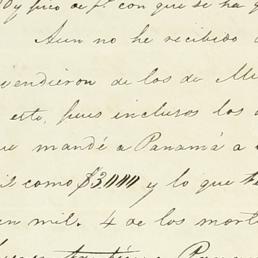 y pico de ps con que se ha
Aun no he recibido
vendieron de los de
esto, pues inclusos los
mandé a Panamá a
como $3.000 y lo que
en mil. 4 de los